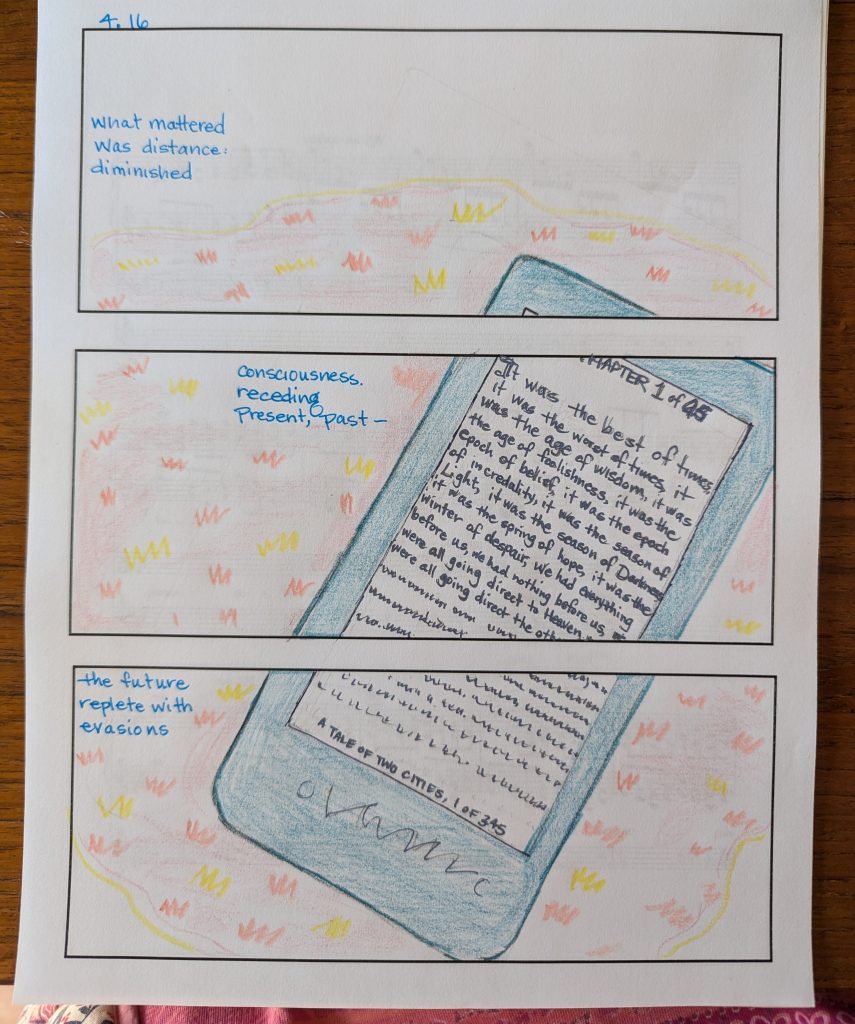 4.16
what mattered
was distance:
diminished
consciousness.
receding
Present, past —
CHAPTER 1 of 45
It was the best of times,
it was the worst of times, it
was the age of wisdom, it was
the age of foolishness, it was the
epoch of belief, it was the epoch
of incredality, it was the season of
Light, it was the season of Darkness
it was the spring of hope, it was the
winter of despair, we had everything
before us, we had nothing before us,
were all going direct to heaven,
were all going direct the other
the future
replete with
evasions
A TALE OF TWO CITIES, 1 OF 345